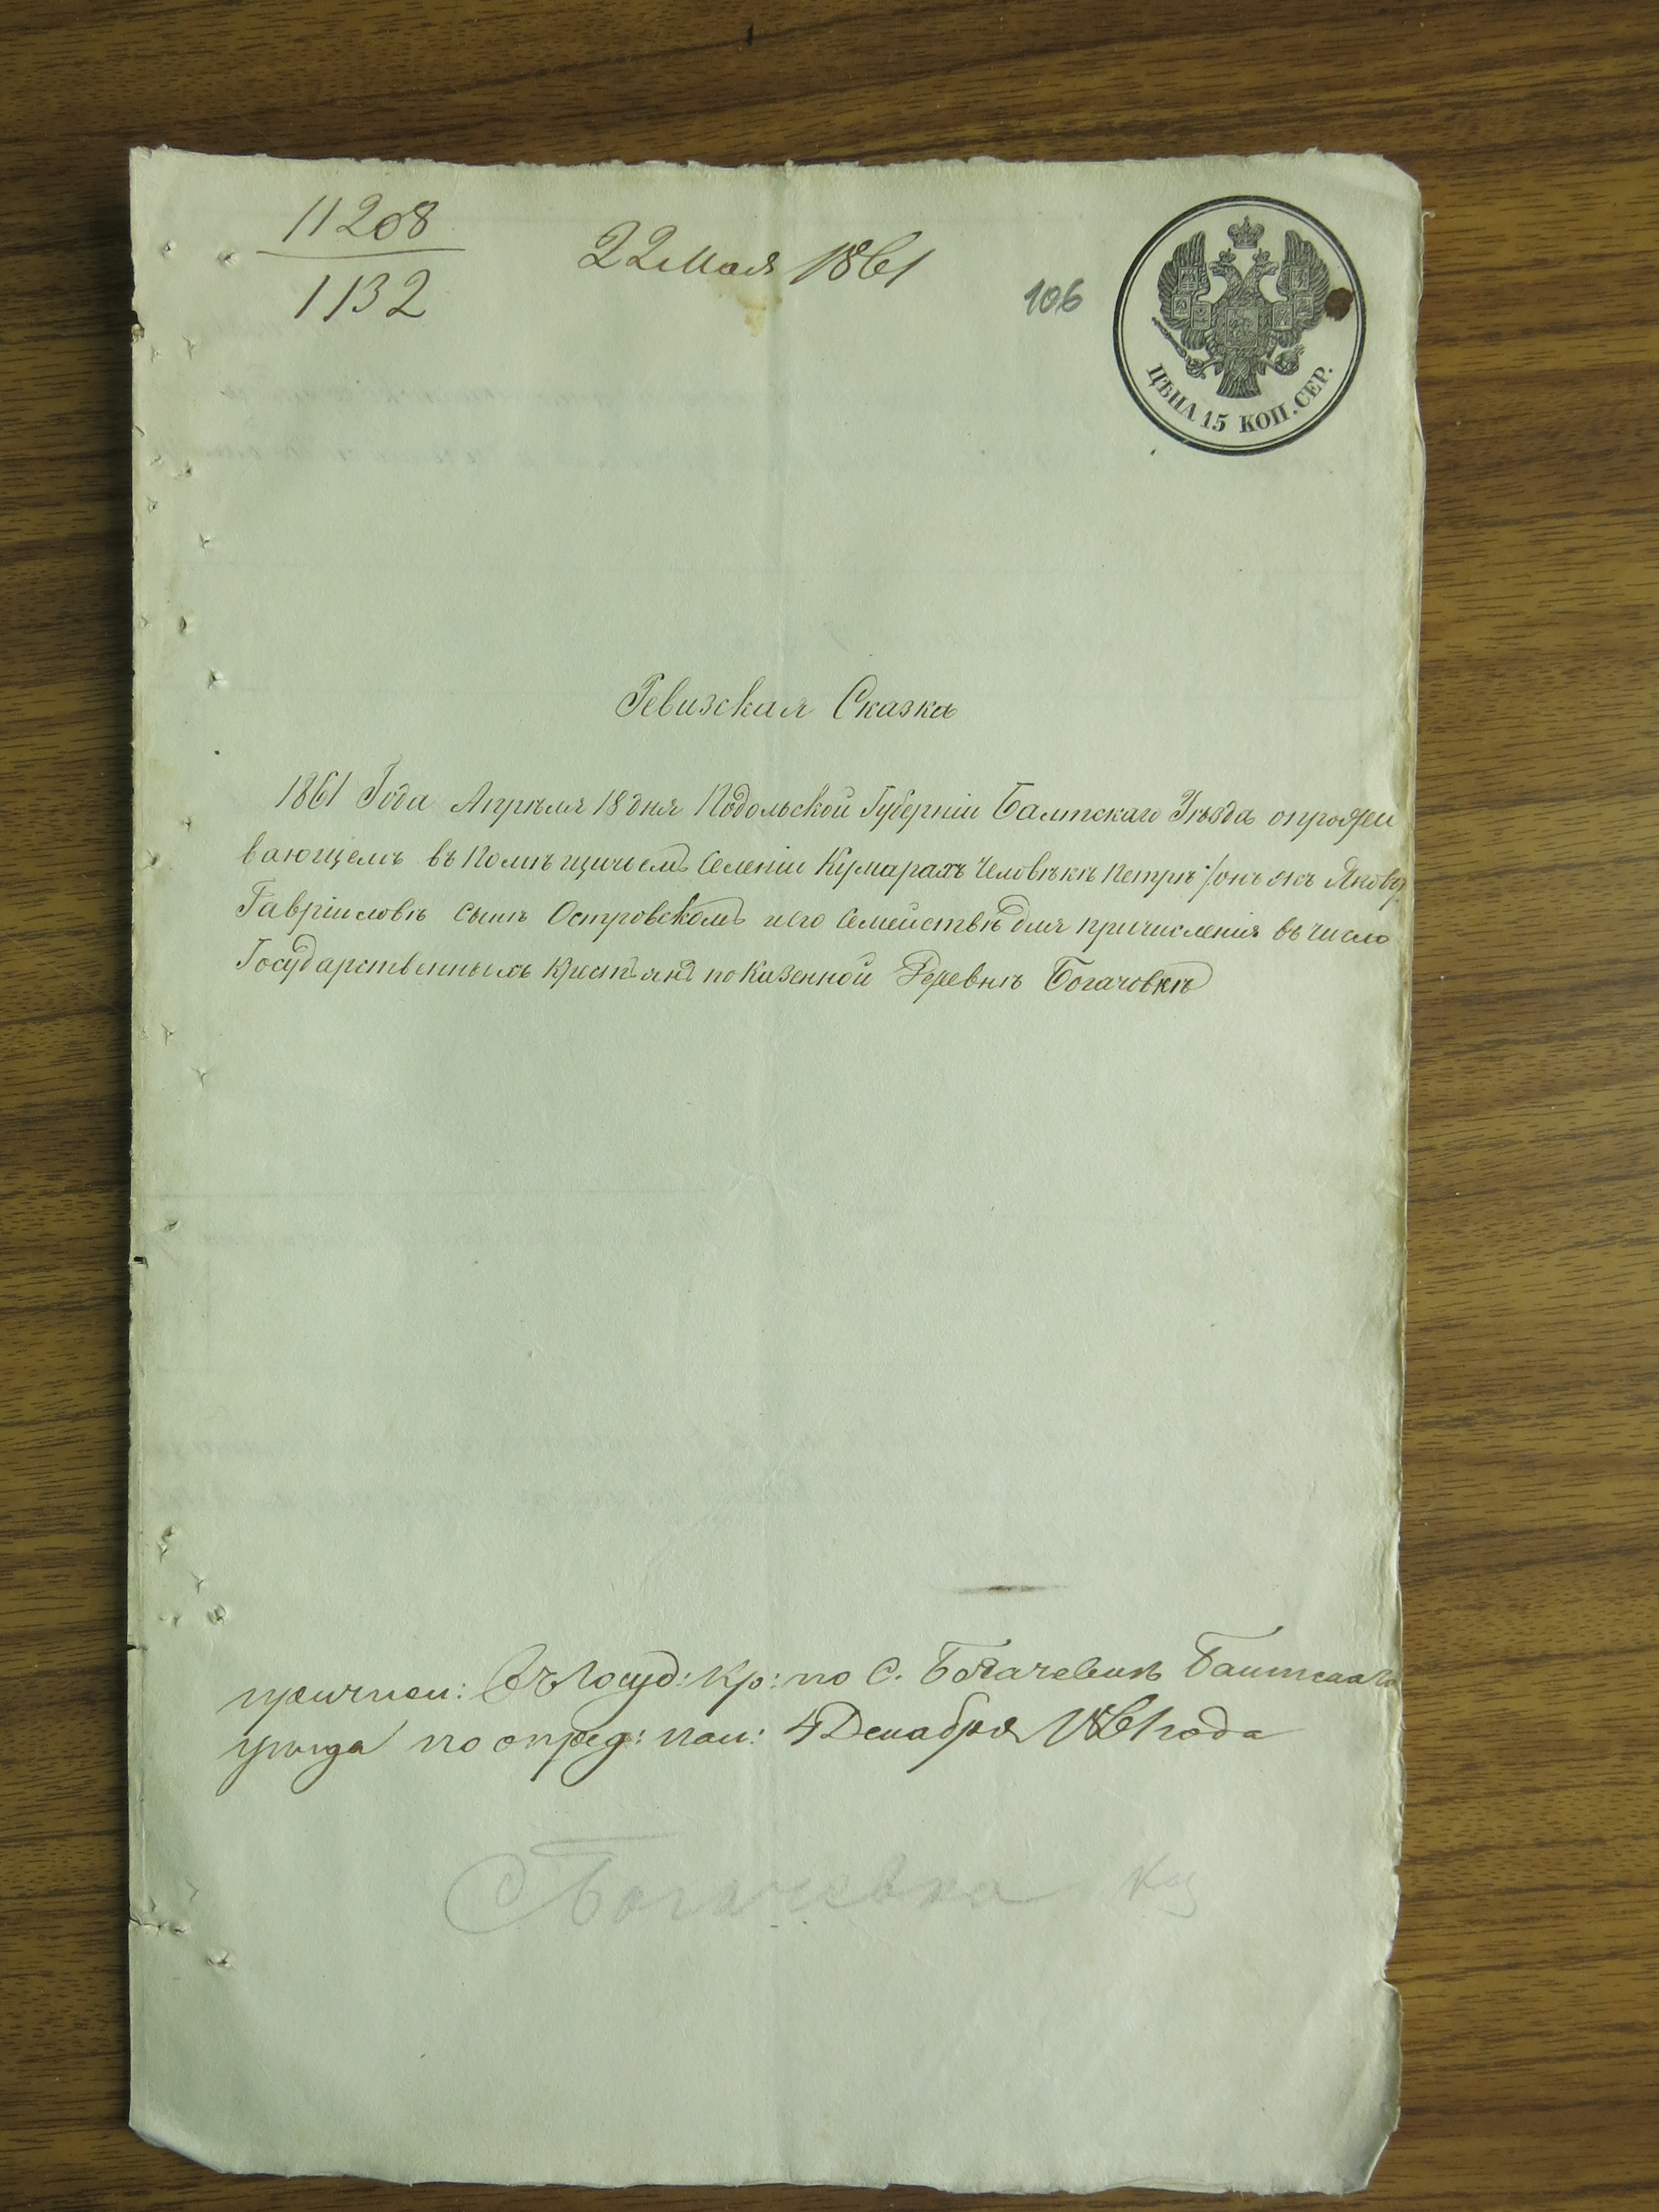 11208
1132
22 Мая 1861
106
ЦѢНА 15 КОП. СЕР.
Ревизская Сказка
1861 Года Апрѣля 18 дня Подольской Губерніи Балтскаго Уѣзда о прожи
вающемъ въ Помѣщичьемъ Селеніи Кумарахъ Человѣкѣ Петрѣ /онъ жъ Яковъ/
Гавріиловѣ сынѣ Островскомъ и его Семействѣ для причисленія въ число
Государственныхъ Крестьянъ по Казенной Деревнѣ Богачовкѣ
причисл: Въ Госуд: Кр: по С. Богачевкѣ Балтскаго
уѣзда по опред: пал: 4 Декабря 1861 года
С Богачевка